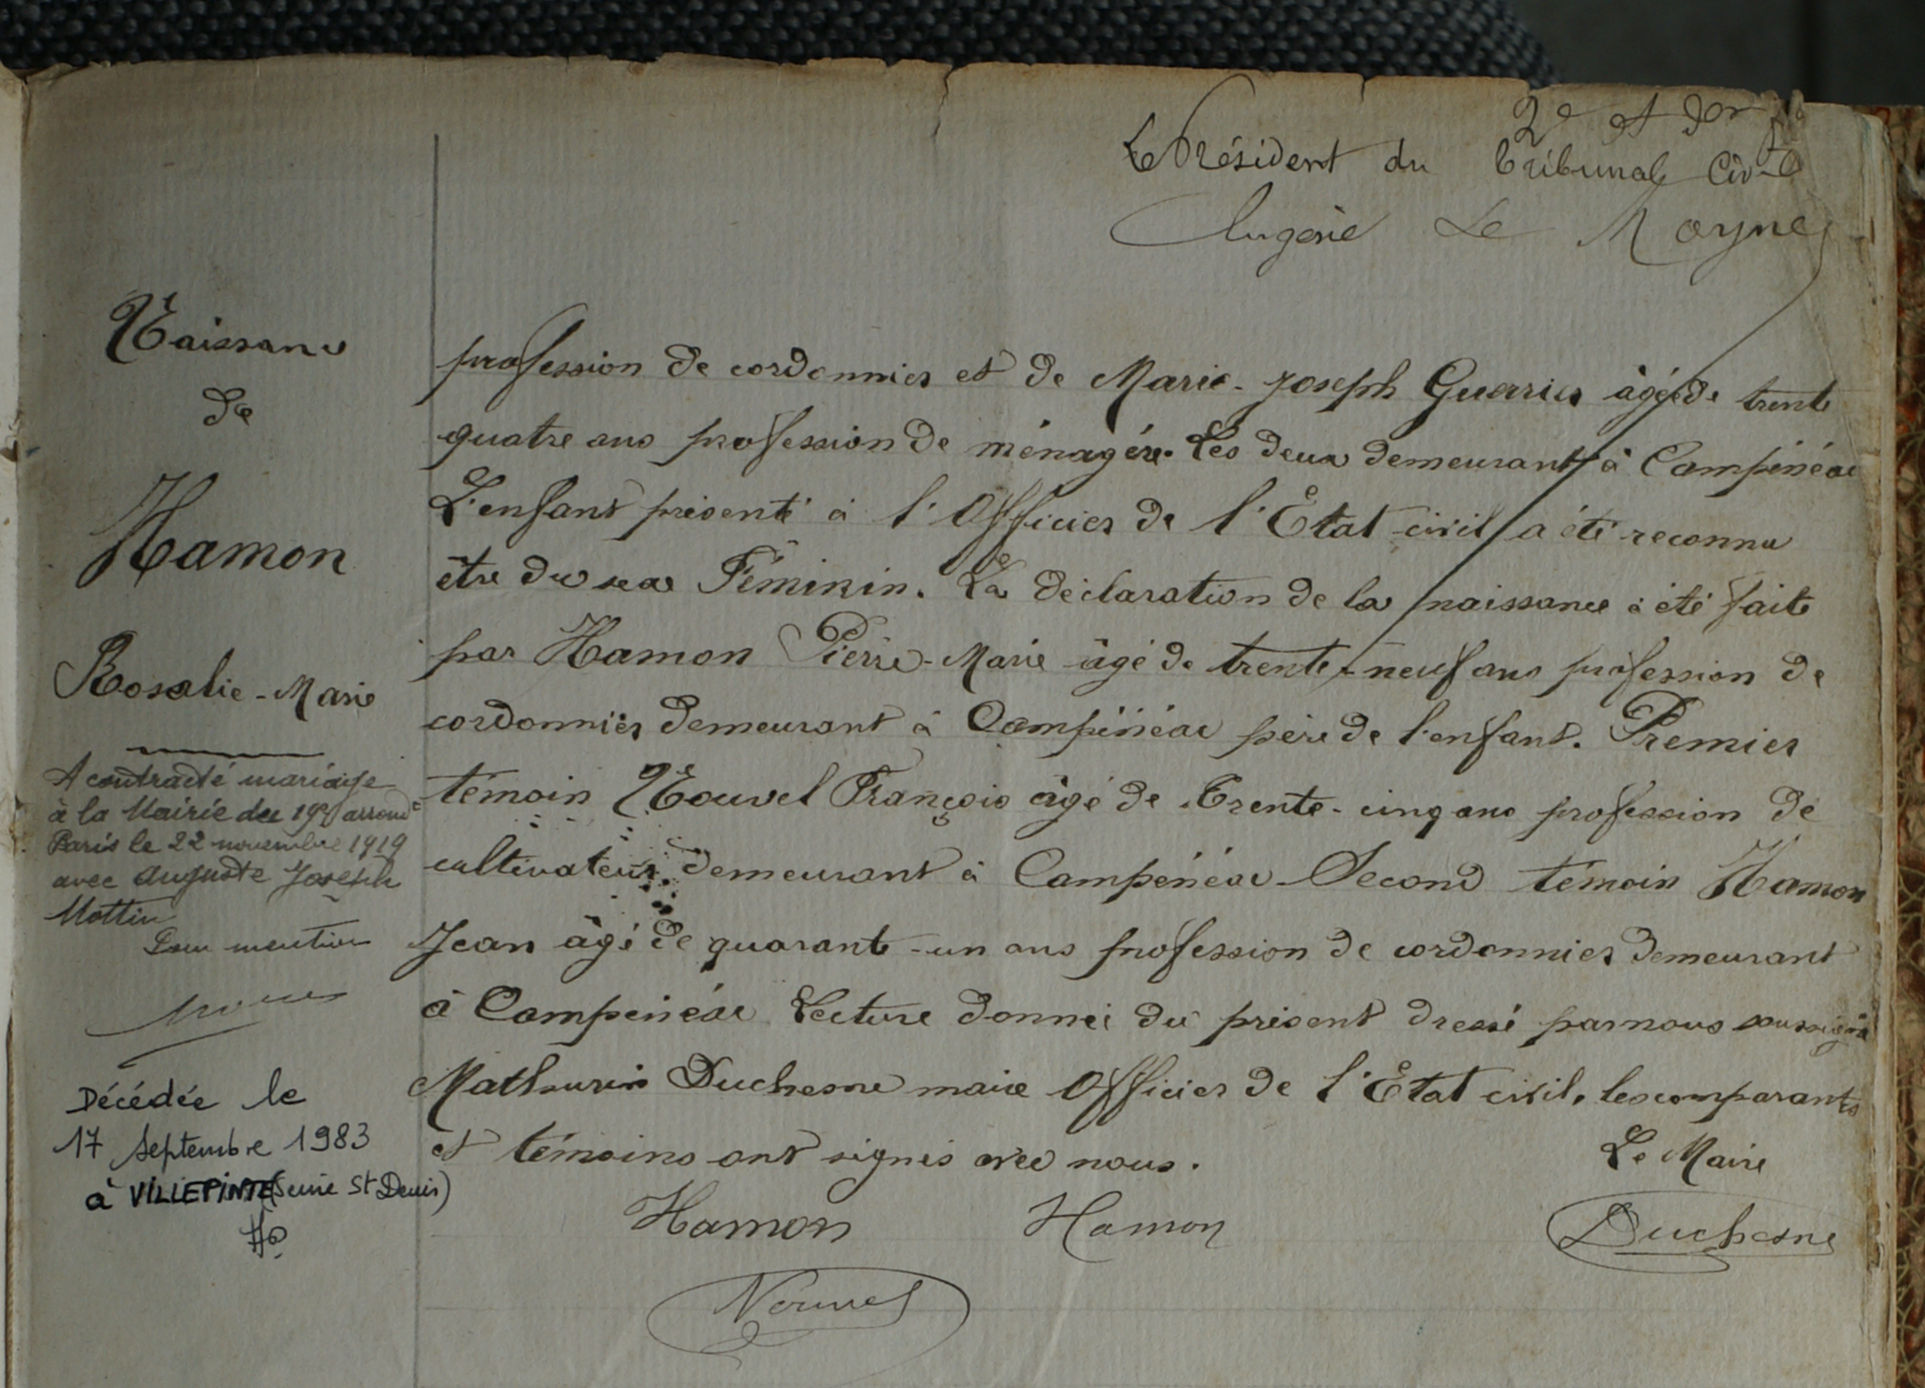 2e et der
Le Président du Tribunal Civil
Eugène Le Moyne
Naissance
de
Hamon
Rosalie-Marie
A contracté mariage
à la Mairie du 19e arrondt
Paris le 22 novembre 1919
avec Auguste Joseph
Mottin
Pour mention
Décédée le
17 Septembre 1983
à VILLEPINTE (Seine St Denis)
profession de cordonnier et de Marie-Joseph Guerrier âgée de trente
quatre ans profession de ménagère. Les deux demeurant à Campénéac
L'enfant présenté à l'Officier de l'Etat civil a été reconnu
être du sexe Féminin. La déclaration de la naissance a été faite
par Hamon Pierre-Marie âgé de trente-neuf ans profession de
cordonnier demeurant à Campénéac père de l'enfant. Premier
témoin Nouvel François âgé de trente-cinq ans profession de
cultivateur demeurant à Campénéac Second témoin Hamon
Jean âgé de quarante-un ans profession de cordonnier demeurant
à Campénéac Lecture donnée du présent dressé par nous soussigné
Mathurin Duchesne maire Officier de l'Etat civil, les comparants
et témoins ont signés avec nous.
Le Maire
Hamon Hamon Duchesne
Nouvel